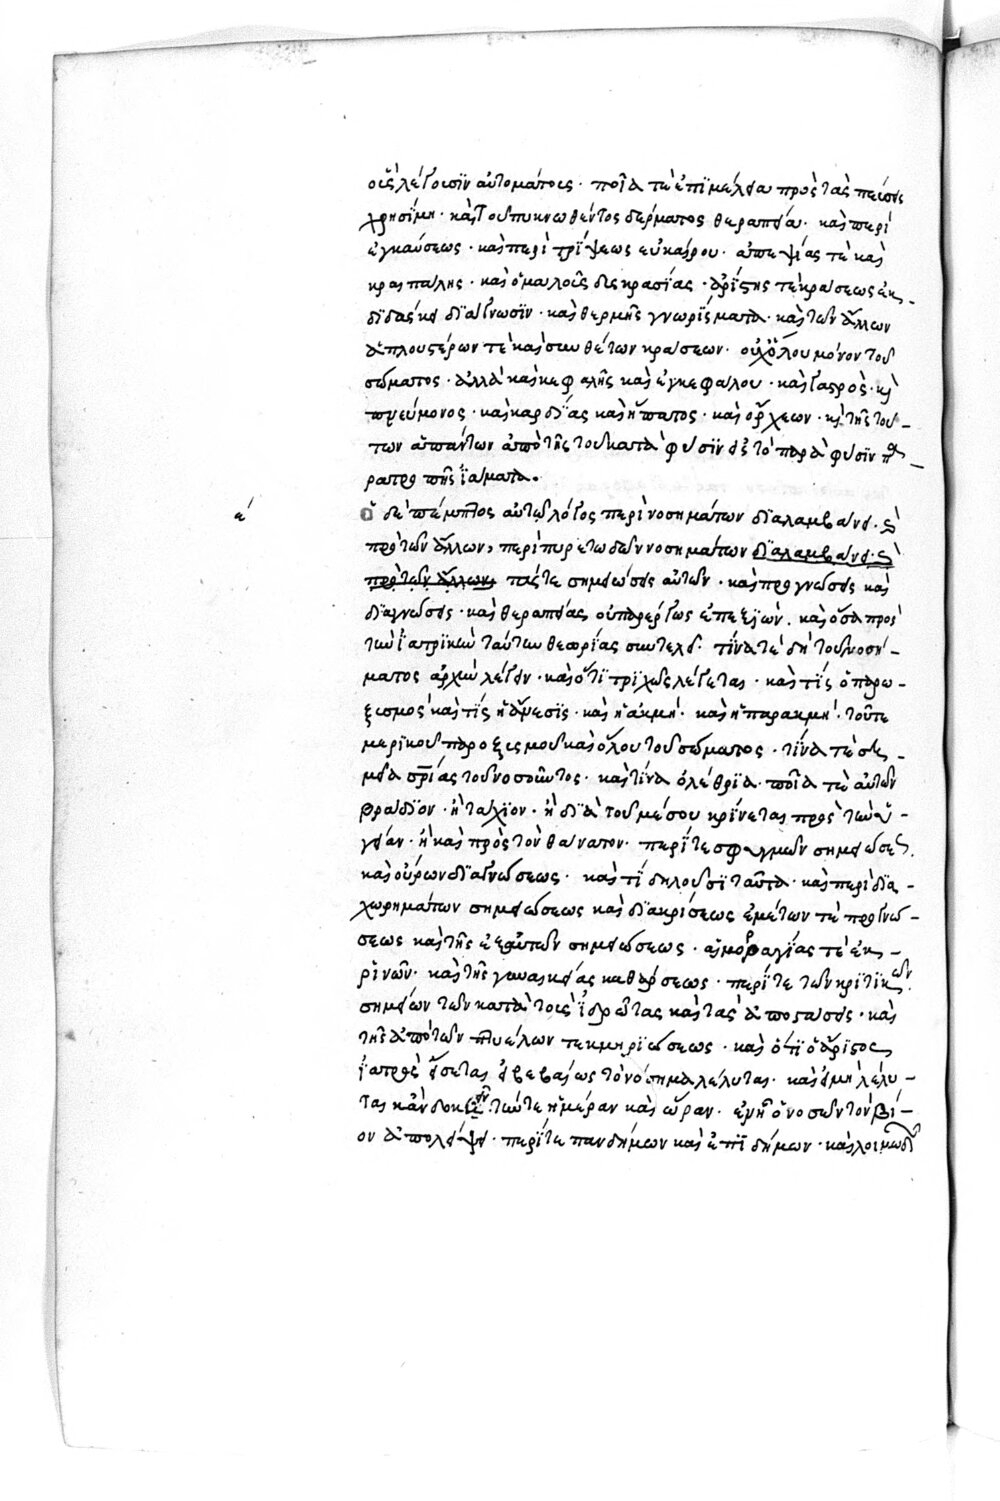 οἷς λέγουσιν αὐτομάτοις · ποῖά τε ἐπιμέλεια πρὸς τὰς
χρησίμη · καὶ τοῦ πυκνωθέντος δέρματος θεραπεία · καὶ περὶ
ἐγκαύσεως · καὶ περὶ τρίψεως εὐκαίρου · ἀπεψίας τὲ καὶ
κραιπάλης · καὶ ὁμαλοῦς δυσκρασίας · ἀρίστης τὲ κράσεως ἐκ-
διδάσκει διάγνωσιν · καὶ θερμῆς γνωρίσματα · καὶ τῶν ἄλλων
ἁπλουστέρων τὲ καὶ συνθέτων κράσεων · οὐχ ὅλου μόνον τοῦ
σώματος · ἀλλὰ καὶ κεφαλῆς καὶ ἐγκεφάλου · καὶ γαστρὸς · καὶ
πνεύμονος · καὶ καρδίας καὶ ἥπατος · καὶ ὄρχεων · καὶ τῆς τού-
των ἁπάντων ἀπὸ τῆς τοῦ κατὰ φύσιν εἰς τὸ παρὰ φύσιν
ἰάματα.
ε΄
ὁ δὲ πέμπτος αὐτῶ λόγος περὶ νοσημάτων διαλαμβάνει ·
πρὸ τῶν ἄλλων, περὶ πυρετωδῶν νοσημάτων διαλαμβάνει ·
πρὸ τῶν ἄλλων, πάς τε σημειώσεις αὐτῶν · καὶ προγνώσεις καὶ
διαγνώσεις · καὶ θεραπείας οὐ παρέργως ἐπεξιών · καὶ ὅσα πρὸς
τῶν ἰατρικῶν ταύτων θεωρίας συντελεῖ · τίνα τὲ δὴ τοῦ νοσή-
ματος ἀρχὴν λέγειν · καὶ ὅτι τριχῶς λέγεται · καὶ τίς ὁ παρο-
ξυσμός καὶ τίς ἡ ἄνεσις · καὶ ἡ ἀκμή · καὶ ἡ παρακμή · τοῦτε
μερικοῦ παροξυσμοῦ καὶ ὅλου τοῦ σώματος · τίνα τὲ ση-
μεῖα σωτηρίας τοῦ νοσοῦντος · καὶ τίνα ὀλέθρια · ποῖα τὲ αὐτῶν
βράδιον · ἢ τάχιον · ἢ διὰ τοῦ μέσου κρίνεται πρὸς τὴν ὑ-
γείαν · ἢ καὶ πρὸς τὸν θάνατον · περί τε σφυγμῶν σημειώσεως
καὶ οὔρων διαγνώσεως · καὶ τί δηλοῦσι ταῦτα · καὶ περὶ δια-
χωρημάτων σημειώσεως καὶ διακρίσεως ἐμέτων τὲ προγνώ-
σεως καὶ τῆς ἐξ αὐτῶν σημειώσεως · αἱμορραγίας τὲ ἐκ
ῥινῶν · καὶ τῆς γυναικείας καθάρσεως · περί τε τῶν κριτικῶν
σημείων τῶν κατὰ τοὺς ἱδρῶτας καὶ τὰς ἀποστάσεις · καὶ
τῆς ἀπὸ τῶν πτυέλων τεκμηριώσεως · καὶ ὅτι ὁ ἄριστος
ἰατρὸς εἴσεται εἰ βεβαίως τὸ νόσημα λέλυται · καὶ εἰ μὴ λέλυ-
ται κἂν δοκῇ · τήν τε ἡμέραν καὶ ὥραν · ἐν ᾗ ὁ νοσῶν τὸν βί-
ον ἀπολείψει · περί τε πανδήμων καὶ ἐπιδήμων · καὶ λοιμωδῶν